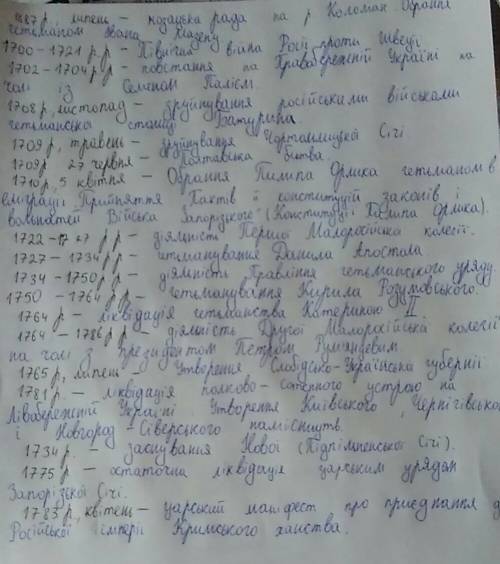 1687 р. липень – козацька рада на р Коломак Обрання
гетьманом Івана Мазепу
1700 – 1721 р.р – Північна війна Росії проти Швеції
1702 – 1704 р р – повстання на Правобережній Україні на
чолі із Семеном Палієм.
1708 р, листопад – зруйнування російськими військами
гетьманської столиці Батурина
1709 р, травень – зруйнування Чортомлицької Січі
1709 р 27 червня – Полтавська битва.
1710 р, 5 квітня – Обрання Пилипа Орлика гетьманом в
еміграції Прийняття Пактів й конституцій законів і
вольностей Війська Запорізького (Конституції Пилипа Орлика).
1722 – 17 27 р р – діяльність Першої Малоросійської колегії.
1727 – 1734 р р – гетьманування Данила Апостола
1734 – 1750 р р – діяльність Правління гетьманського уряду.
1750 – 1764 р р – гетьманування Кирила Розумовського.
1764 р – ліквідація гетьманства Катериною II
1764 – 1786 р р – діяльність Другої Малоросійської колегії
на чолі з президентом Петром Румянцевим
1765 р, липень – Утворення Слобідсько-Української губернії
1781 р. – ліквідація полково-сотенного устрою на
Лівобережній Україні Утворення Київського, Чернігівського
і Новгород-Сіверського намісництв.
1734 р. – заснування Нової (Підпільненської Січі).
1775 р – остаточна ліквідація царським урядом
Запорізької Січі.
1783 р, квітень – царський маніфест про приєднання д
Російської імперії Кримського ханства.